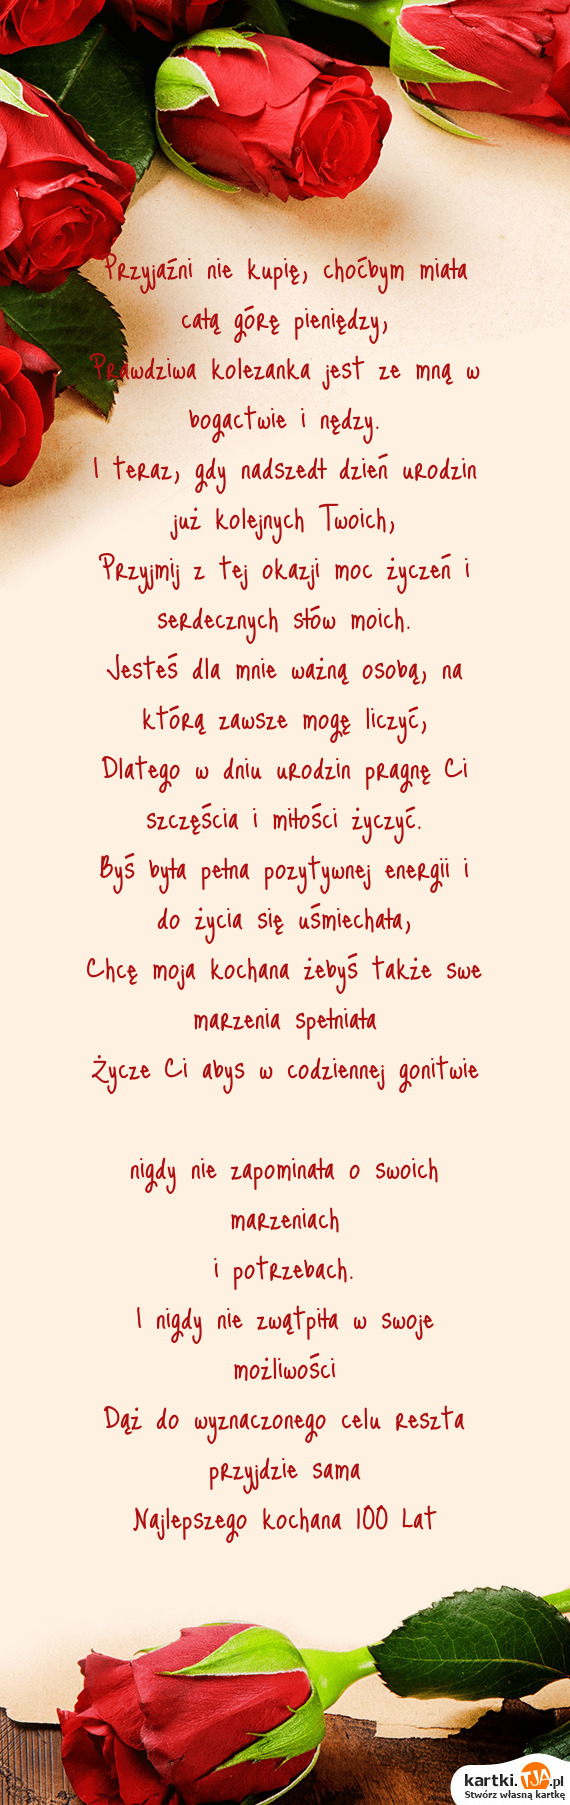 Przyjaźni nie kupię, choćbym miała
całą górę pieniędzy,
Prawdziwa kolezanka jest ze mną w
bogactwie i nędzy.
I teraz, gdy nadszedł dzień urodzin
już kolejnych Twoich,
Przyjmij z tej okazji moc życzeń i
serdecznych słów moich.
Jesteś dla mnie ważną osobą, na
którą zawsze mogę liczyć,
Dlatego w dniu urodzin pragnę Ci
szczęścia i miłości życzyć.
Byś była pełna pozytywnej energii i
do życia się uśmiechała,
Chcę moja kochana żebyś także swe
marzenia spełniała
Życze Ci abys w codziennej gonitwie
nigdy nie zapominała o swoich
marzeniach
i potrzebach.
I nigdy nie zwątpiła w swoje
możliwości
Dąż do wyznaczonego celu reszta
przyjdzie sama
Najlepszego kochana 100 Lat
kartki.TJA.pl
Stwórz własną kartkę